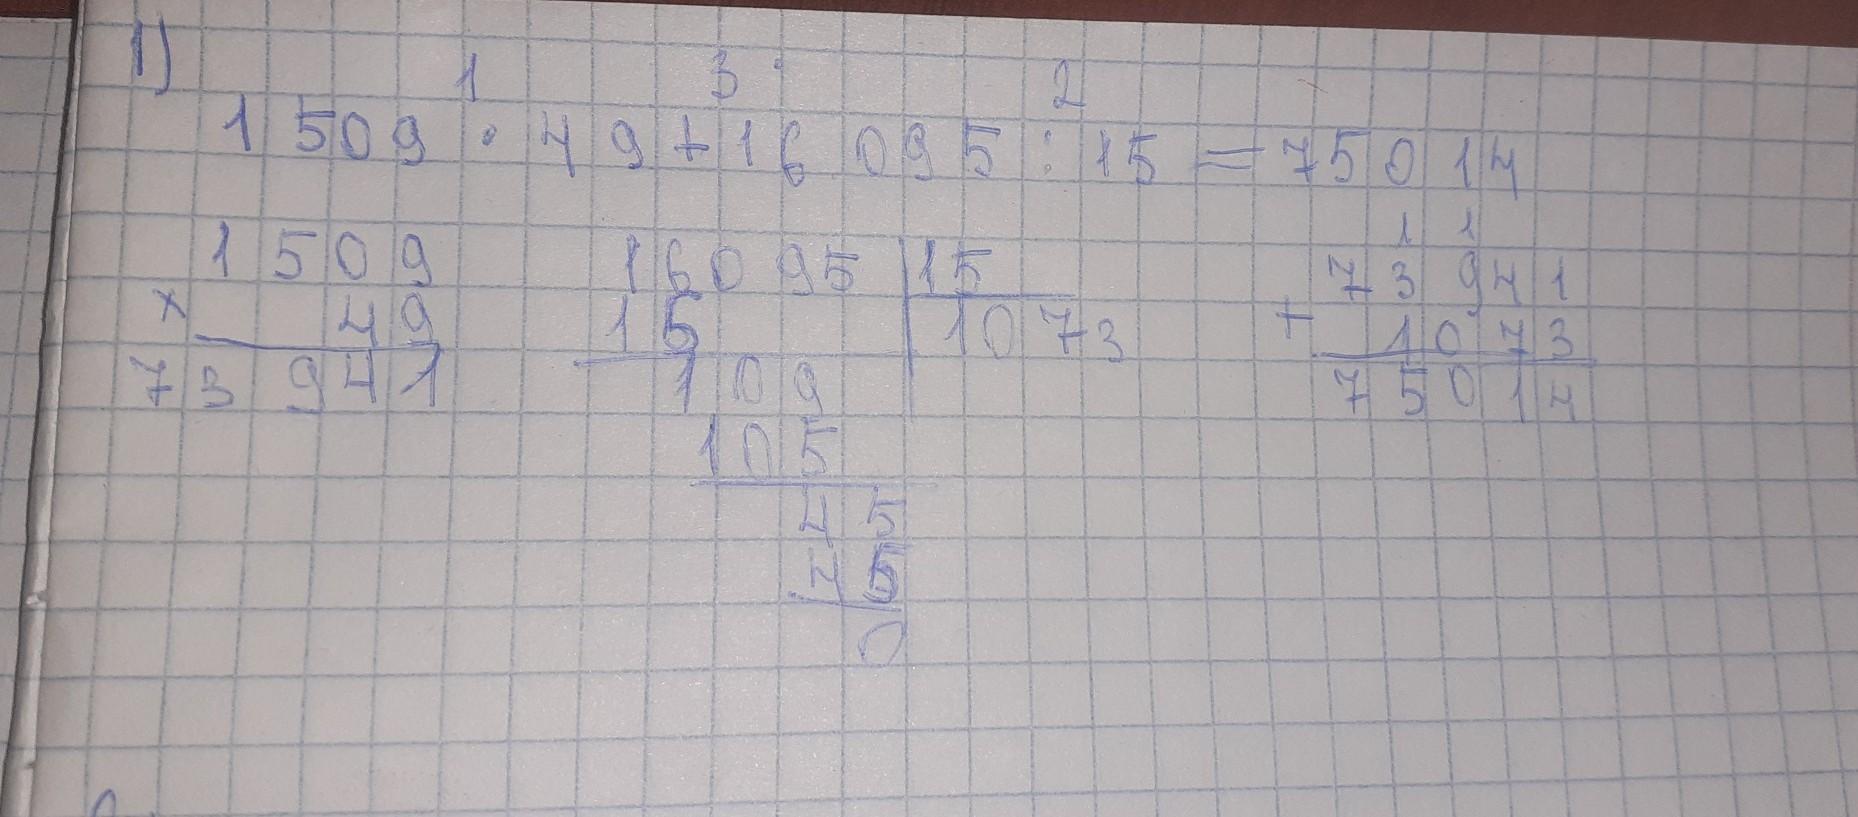 1)
1 3 2
1509 · 49 + 16095 : 15 = 75014
1509
× 49
73941
16095 | 15
15 1073
109
105
45
45
0
1 1
73941
+ 1073
75014